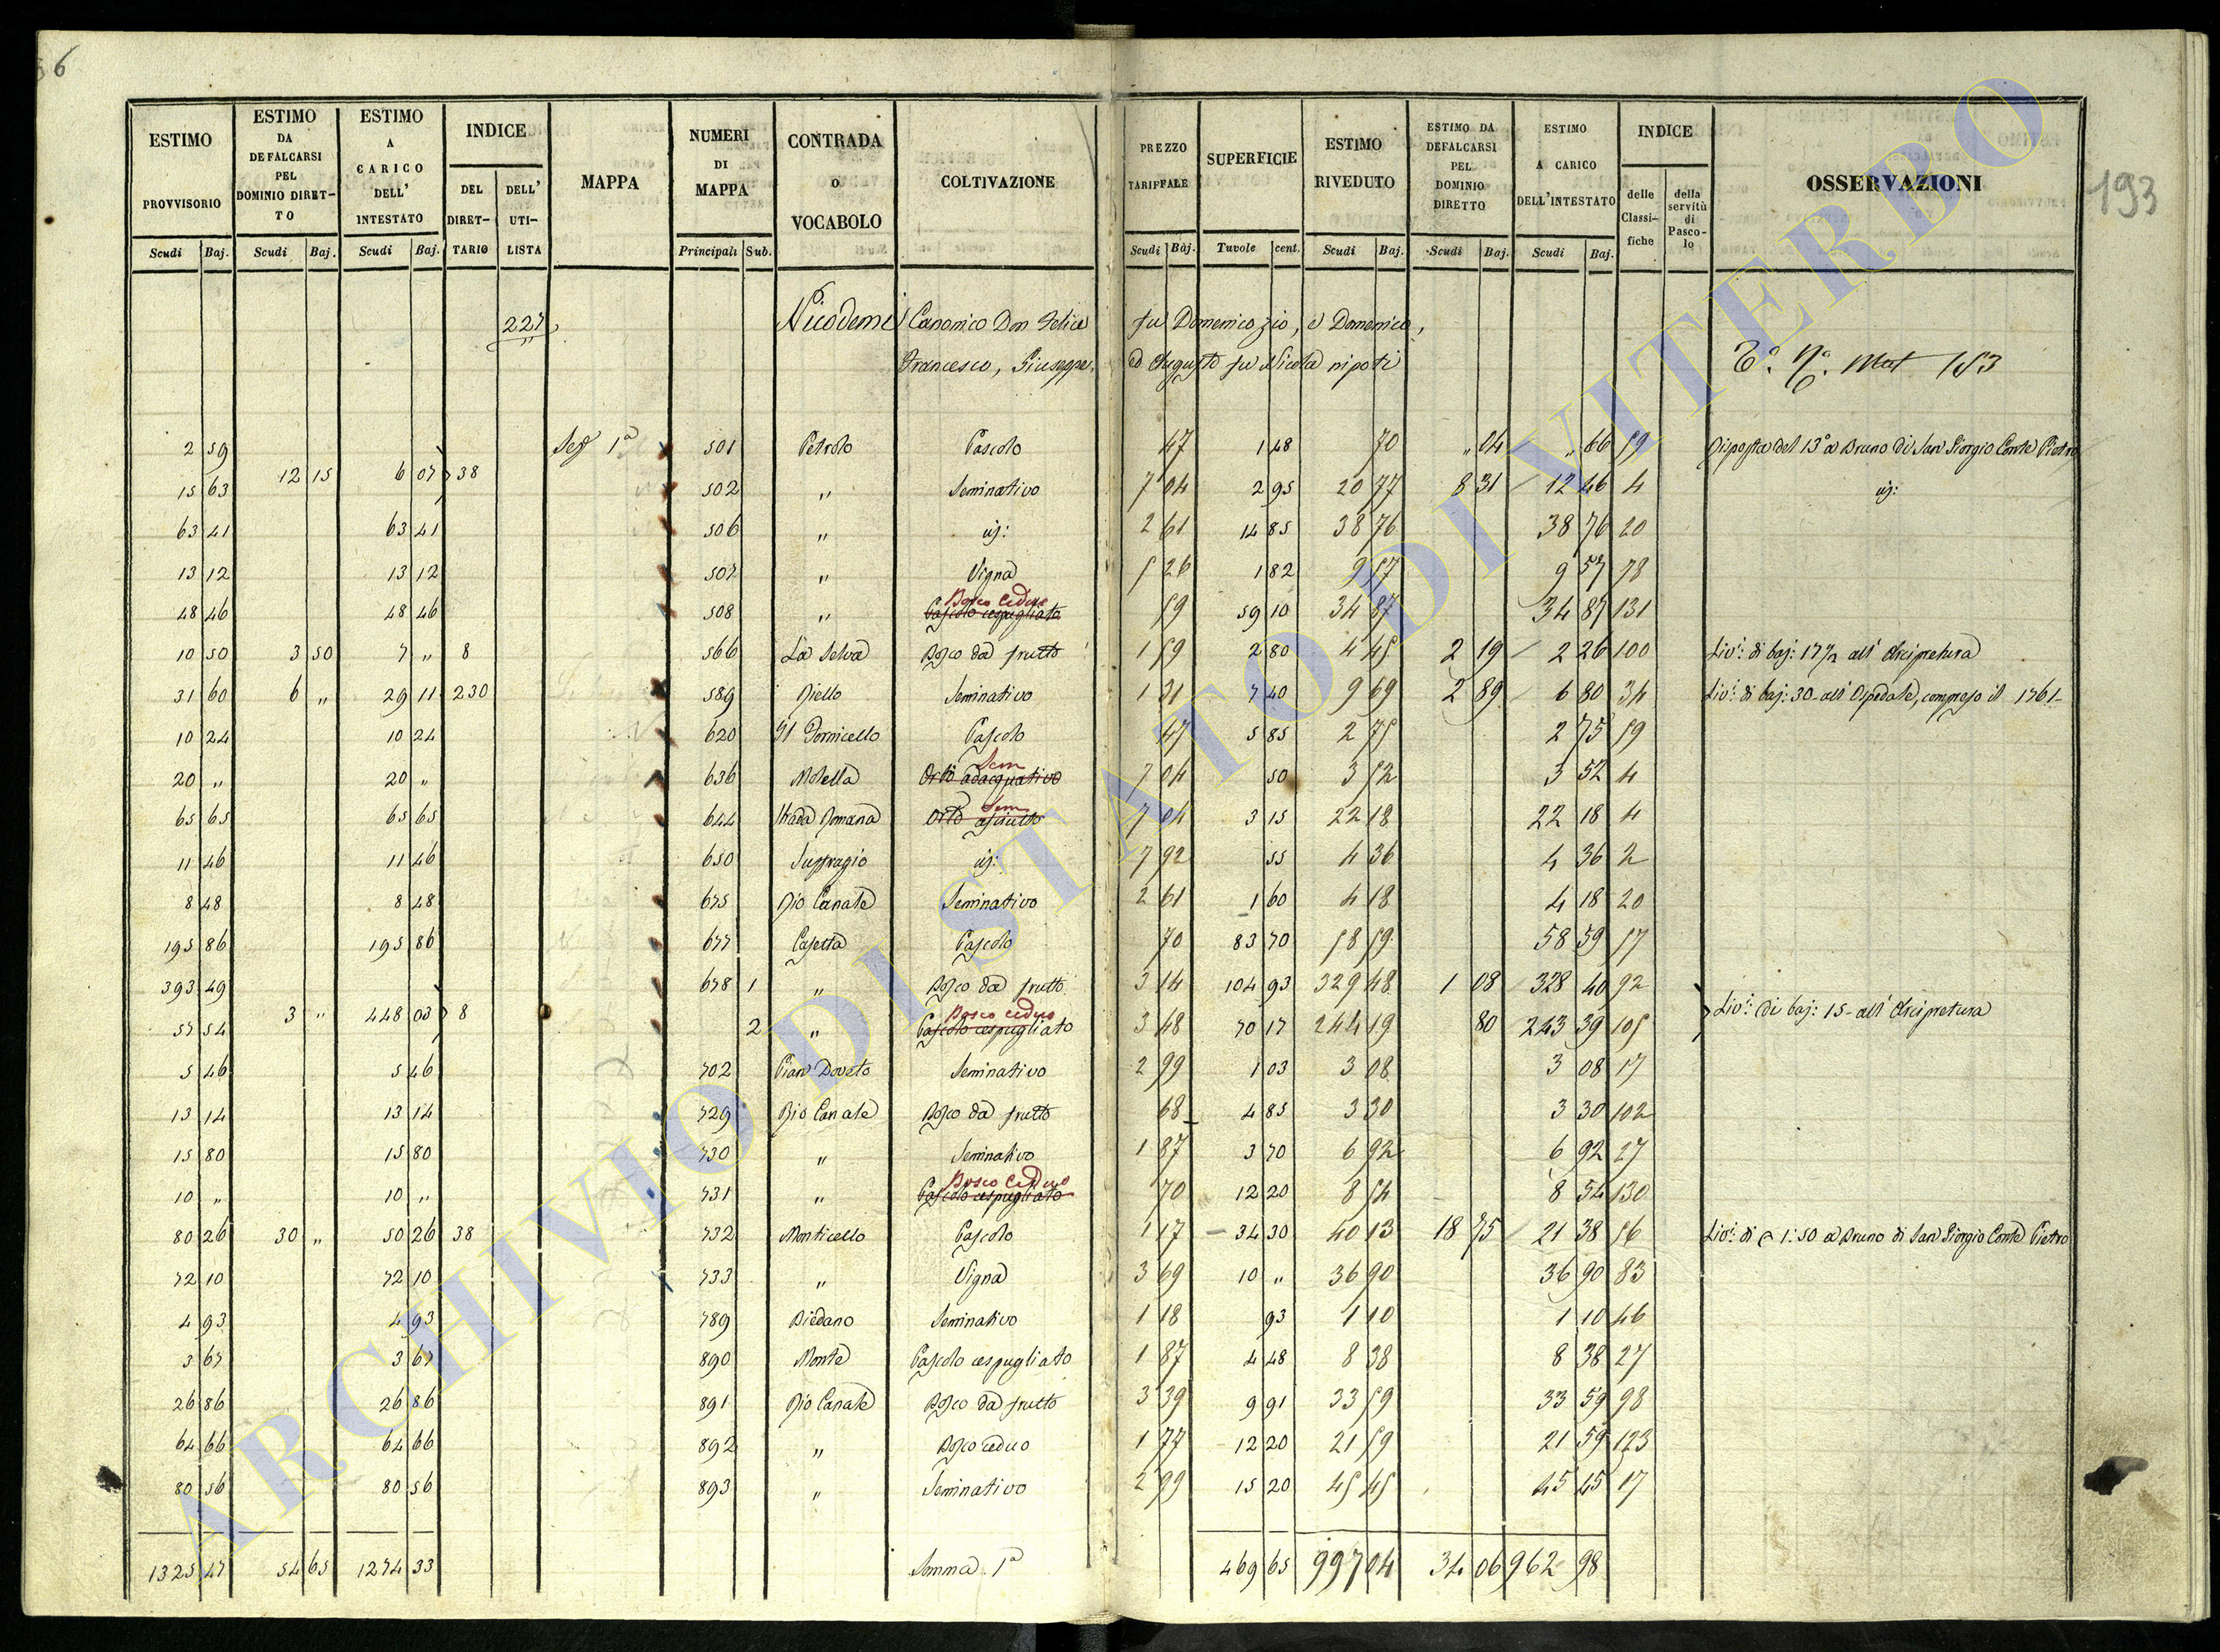 6
193
ESTIMO PROVVISORIO | ESTIMO DA DEFALCARSI PEL DOMINIO DIRETTO | ESTIMO A CARICO DELL' INTESTATO | INDICE DEL DIRETTARIO | DELL' UTILISTA | MAPPA | NUMERI DI MAPPA | CONTRADA O VOCABOLO | COLTIVAZIONE | PREZZO TARIFFALE | SUPERFICIE | ESTIMO RIVEDUTO | ESTIMO DA DEFALCARSI PEL DOMINIO DIRETTO | ESTIMO A CARICO DELL'INTESTATO | INDICE delle Classifiche | della servitù di Pascolo | OSSERVAZIONI
Scudi | Baj. | Scudi | Baj. | Scudi | Baj. | Principali | Sub. | Scudi | Baj. | Tavole | cent. | Scudi | Baj. | Scudi | Baj. | Scudi | Baj.
227 Nicodemi Canonico Don Felice fu Domenico zio, e Domenico,
Francesco, Giuseppe, ed Augusto fu Nicola nipoti
Mat 153
2 59 | Sez 1ª | 501 | Petrolo | Pascolo | 47 | 1 48 | 70 | " 04 | " 66 | 59 | Risposta del 13º a Bruno di San Giorgio Conte Pietro
12 15 | 6 07 | 38
15 63 | 502 | " | Seminativo | 7 04 | 2 95 | 20 77 | 8 31 | 12 46 | 4
63 41 | 63 41 | 506 | " | 2 61 | 14 85 | 38 76 | 38 76 | 20
13 12 | 13 12 | 507 | " | Vigna | 5 26 | 1 82 | 9 57 | 9 57 | 78
48 46 | 48 46 | 508 | " | Bosco Ceduo Pascolo cespugliato | 59 | 59 10 | 34 87 | 34 87 | 131
10 50 | 3 50 | 7 " | 8 | 566 | La Selva | Bosco da frutto | 1 59 | 2 80 | 4 45 | 2 19 | 2 26 | 100 | Livº: di baj: 17½ all' Arcipretura
31 60 | 6 " | 29 11 | 230 | 589 | Riello | Seminativo | 1 31 | 7 40 | 9 69 | 2 89 | 6 80 | 34 | Livº: di baj: 30 all' Ospedale, compreso il 1761
10 24 | 10 24 | 620 | Il Pornicello | Pascolo | 47 | 5 85 | 2 75 | 2 75 | 59
20 " | 20 " | 636 | Molella | Sem Orto adacquativo | 7 04 | 50 | 3 52 | 3 52 | 4
65 65 | 65 65 | 644 | Strada Romana | Sem Orto asciutto | 7 04 | 3 15 | 22 18 | 22 18 | 4
11 46 | 11 46 | 650 | Suffragio | 7 92 | 55 | 4 36 | 4 36 | 2
8 48 | 8 48 | 675 | Rio Canale | Seminativo | 2 61 | 1 60 | 4 18 | 4 18 | 20
195 86 | 195 86 | 677 | Casetta | Pascolo | 70 | 83 70 | 58 59 | 58 59 | 57
393 49 | 678 | 1 | " | Bosco da frutto | 3 14 | 104 93 | 329 48 | 1 08 | 328 40 | 92
3 " | 448 03 | 8 | Livº: di baj: 15 all' Arcipretura
57 54 | 2 | " | Bosco ceduo Pascolo cespugliato | 3 48 | 70 17 | 244 19 | 80 | 243 39 | 105
5 46 | 5 46 | 702 | Pian Doveto | Seminativo | 2 99 | 1 03 | 3 08 | 3 08 | 17
13 14 | 13 14 | 729 | Rio Canale | Bosco da frutto | 68 | 4 85 | 3 30 | 3 30 | 102
15 80 | 15 80 | 730 | " | Seminativo | 1 87 | 3 70 | 6 92 | 6 92 | 27
10 " | 10 " | 731 | " | Bosco Ceduo Pascolo cespugliato | 70 | 12 20 | 8 54 | 8 54 | 130
80 26 | 30 " | 50 26 | 38 | 732 | Monticello | Pascolo | 1 17 | 34 30 | 40 13 | 18 75 | 21 38 | 56 | Livº: di 1:50 a Bruno di San Giorgio Conte Pietro
72 10 | 72 10 | 733 | " | Vigna | 3 69 | 10 " | 36 90 | 36 90 | 83
4 93 | 4 93 | 789 | Biedano | Seminativo | 1 18 | 93 | 1 10 | 1 10 | 46
3 67 | 3 67 | 890 | Monte | Pascolo cespugliato | 1 87 | 4 48 | 8 38 | 8 38 | 27
26 86 | 26 86 | 891 | Rio Canale | Bosco da frutto | 3 39 | 9 91 | 33 59 | 33 59 | 98
64 66 | 64 66 | 892 | " | Bosco ceduo | 1 77 | 12 20 | 21 59 | 21 59 | 123
80 56 | 80 56 | 893 | " | Seminativo | 2 99 | 15 20 | 45 45 | 45 45 | 17
1325 47 | 54 65 | 1274 33 | Somma 1ª | 469 65 | 997 04 | 34 06 | 962 98
ARCHIVIO DI STATO DI VITERBO